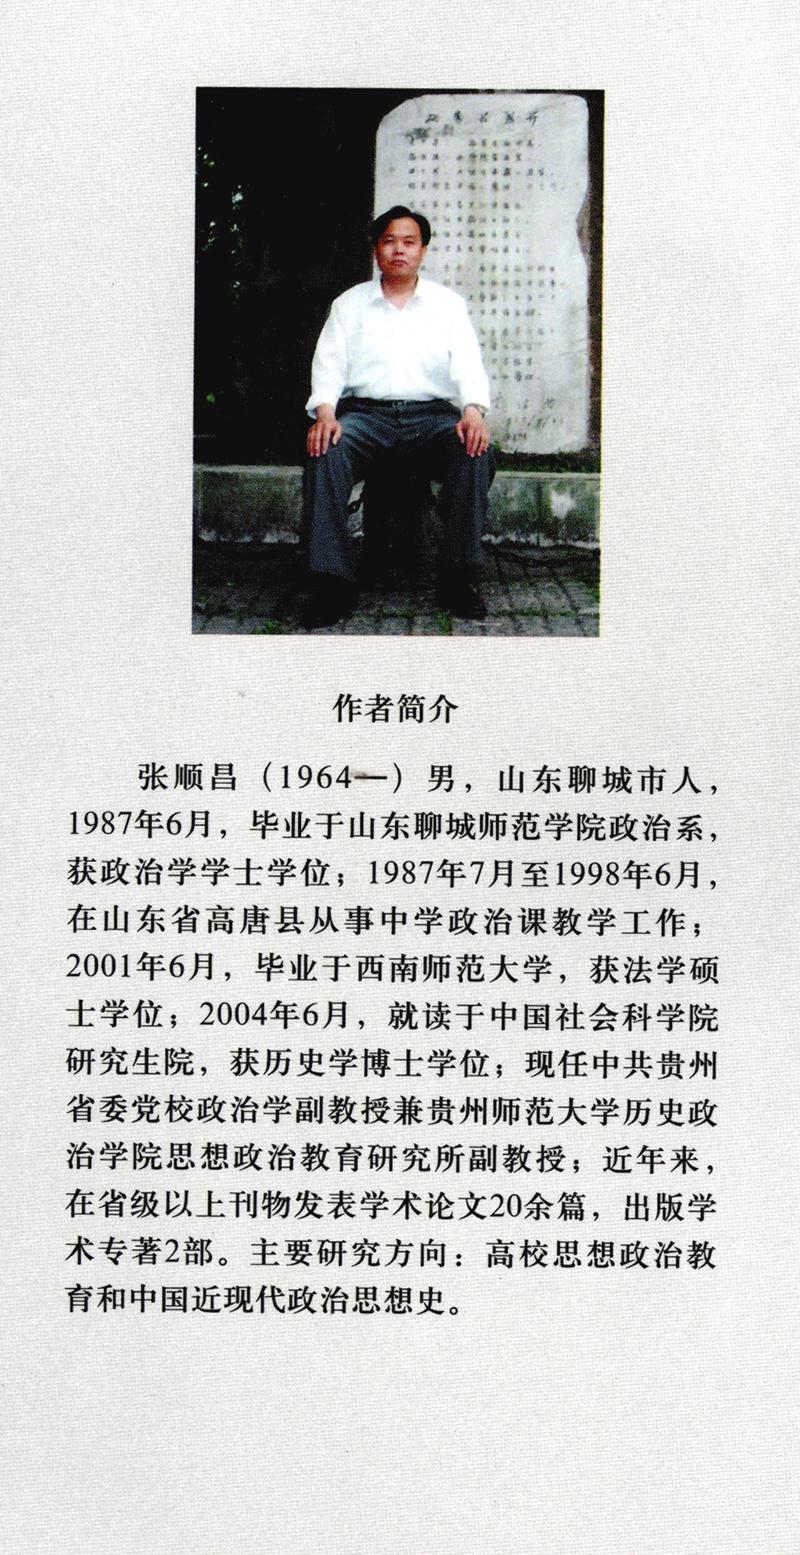 作者简介
张顺昌（1964—）男，山东聊城市人，
1987年6月，毕业于山东聊城师范学院政治系，
获政治学学士学位；1987年7月至1998年6月，
在山东省高唐县从事中学政治课教学工作；
2001年6月，毕业于西南师范大学，获法学硕
士学位；2004年6月，就读于中国社会科学院
研究生院，获历史学博士学位；现任中共贵州
省委党校政治学副教授兼贵州师范大学历史政
治学院思想政治教育研究所副教授；近年来，
在省级以上刊物发表学术论文20余篇，出版学
术专著2部。主要研究方向：高校思想政治教
育和中国近现代政治思想史。